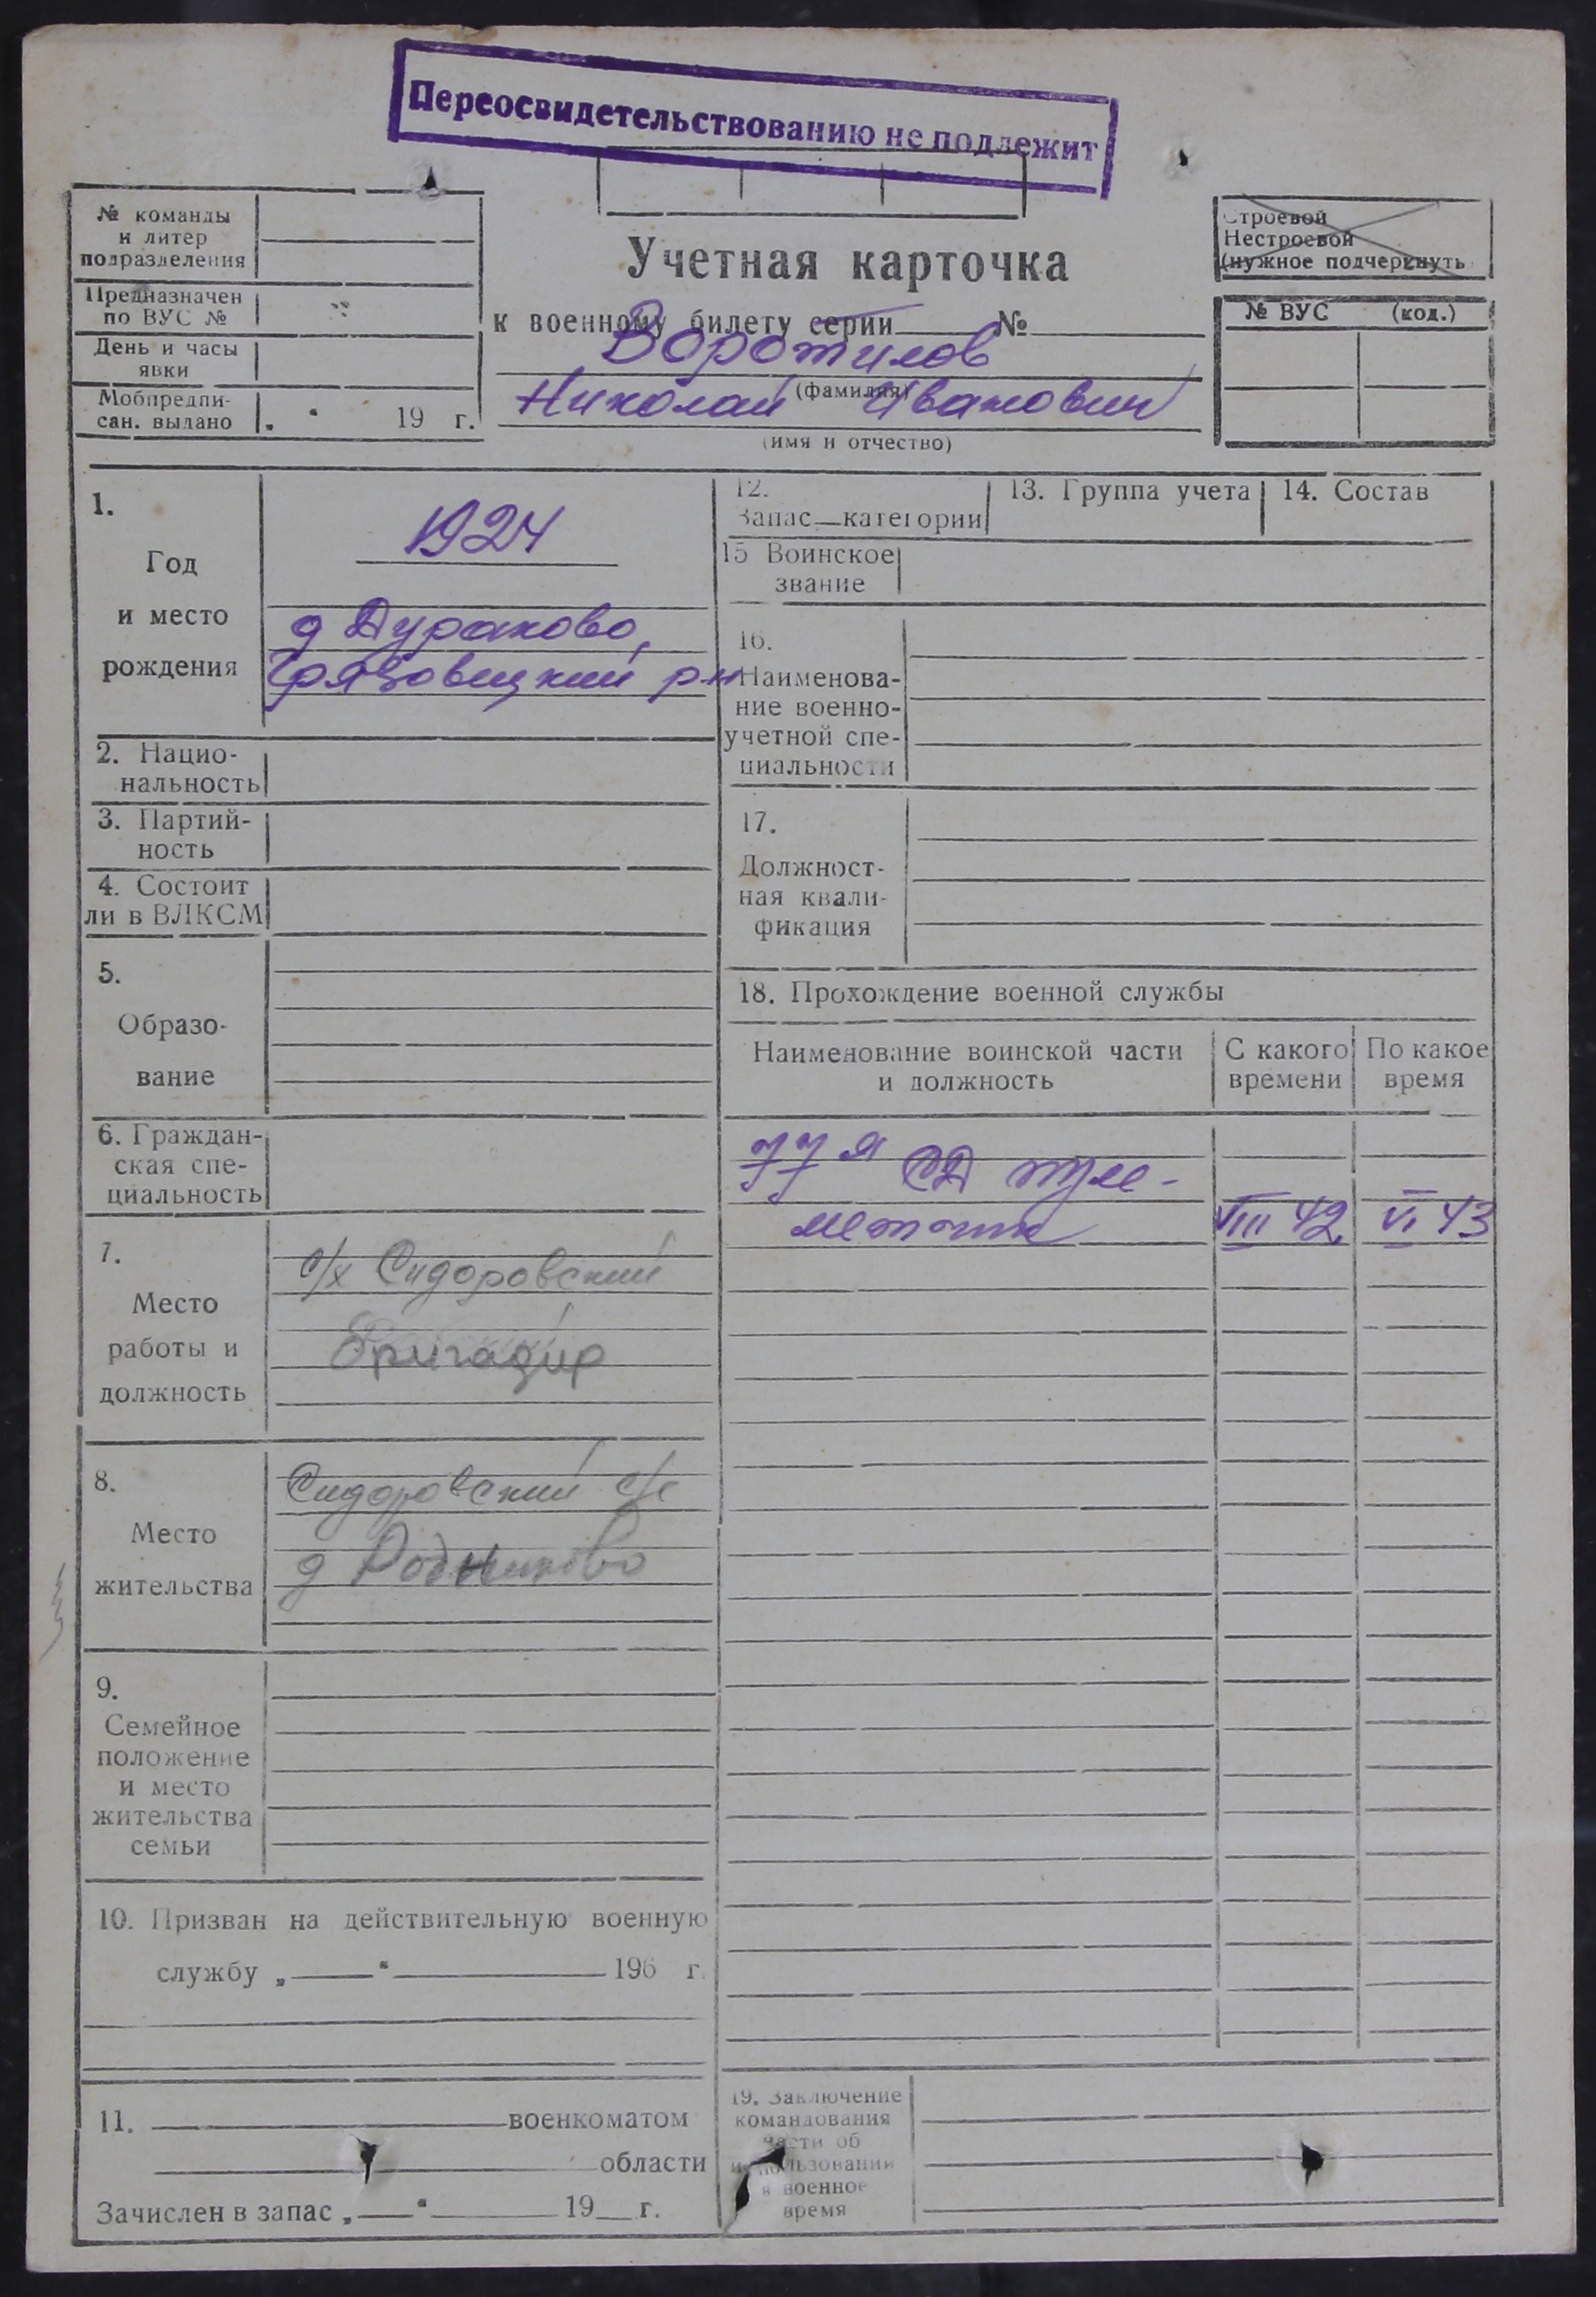 Переосвидетельствованию не подлежит
№ команды
и литер
подразделения
Предназначен
по ВУС №
День и часы
явки
Мобпредпи-
сан. выдано „ “ 19 г.
Учетная карточка
к военному билету серии № 
Воротилов
(фамилия)
Николай Иванович
(имя и отчество)
Строевой
Нестроевой
(нужное подчеркнуть
№ ВУС (код.)
1.
Год
и место
рождения
1924
д Дураково,
Грязовецкий р-н
2. Нацио-
нальность
3. Партий-
ность
4. Состоит
ли в ВЛКСМ
5.
Образо-
вание
6. Граждан-
ская спе-
циальность
7.
Место
работы и
должность
с/х Сидоровский
Бригадир
8.
Место
жительства
Сидоровский с/с
д Родниково
9.
Семейное
положение
и место
жительства
семьи
10. Призван на действительную военную
службу „ “ 196 г.
11. военкоматом
области
Зачислен в запас „ “ 19 г.
12.
Запас категории
13. Группа учета
14. Состав
15 Воинское
звание
16.
Наименова-
ние военно-
учетной спе-
циальности
17.
Должност-
ная квали-
фикация
18. Прохождение военной службы
Наименование воинской части
и должность
С какого
времени
По какое
время
77я СД пуле-
метчик VIII 42 VI 43
19. Заключение
командования
части об
использовании
в военное
время